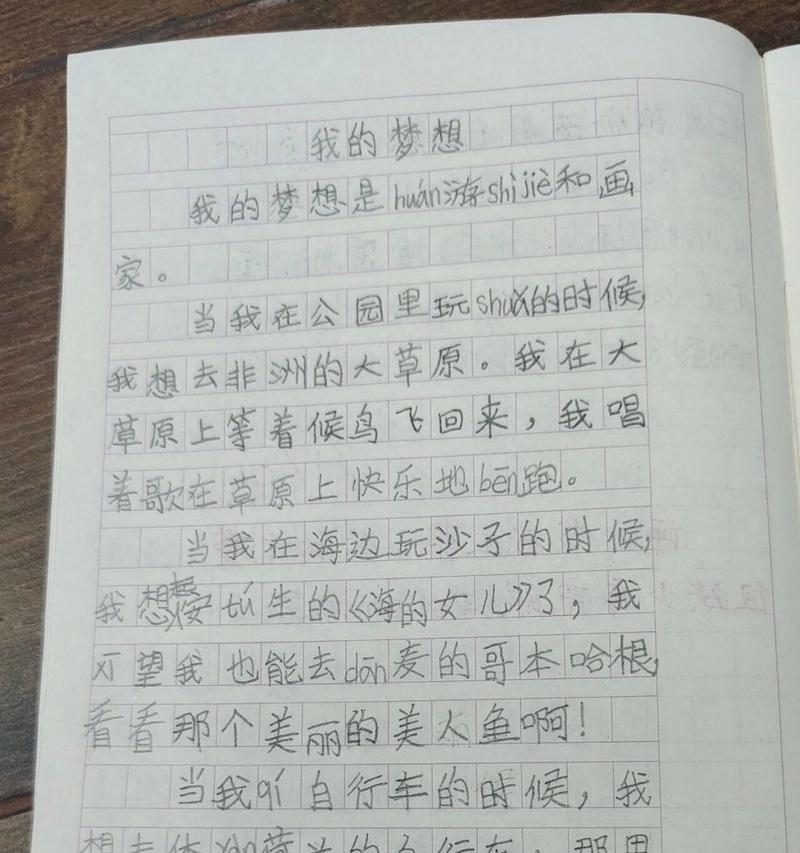 我的梦想
我的梦想是huán游shìjiè和画
家。
当我在公园里玩shuǎ的时候,
我想去非洲的大草原。我在大
草原上等着候鸟飞回来，我唱
着歌在草原上快乐地bēn跑。
当我在海边玩沙子的时候,
我想安tú生的《海的女儿》了，我
望我也能去dān麦的哥本哈根,
看看那个美丽的美人鱼啊！
当我qí自行车的时候，我
想去